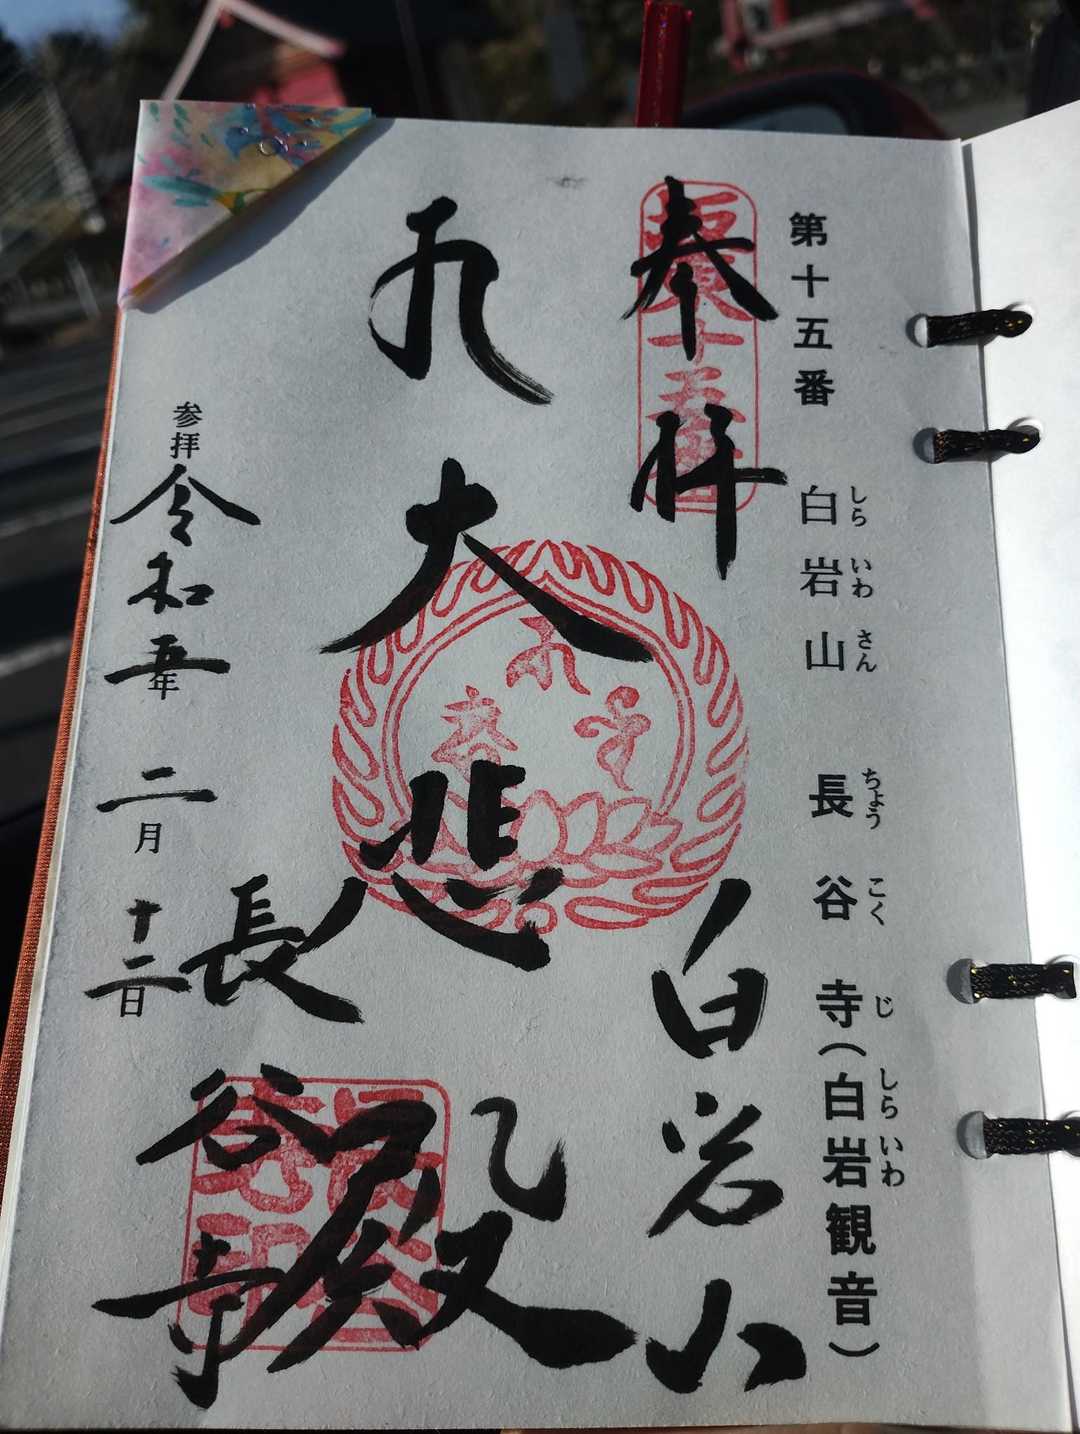 第十五番 白岩山 長谷寺(白岩観音)
しら いわ さん ちょう こく じ しら いわ
奉拝 白岩山
坂東十五番
大悲殿
長谷寺
参拝 令和五年 二月 十二日